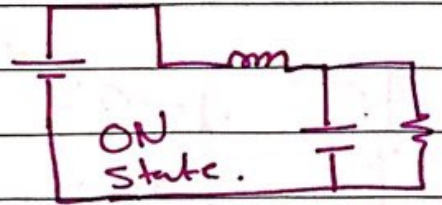 ON
State.